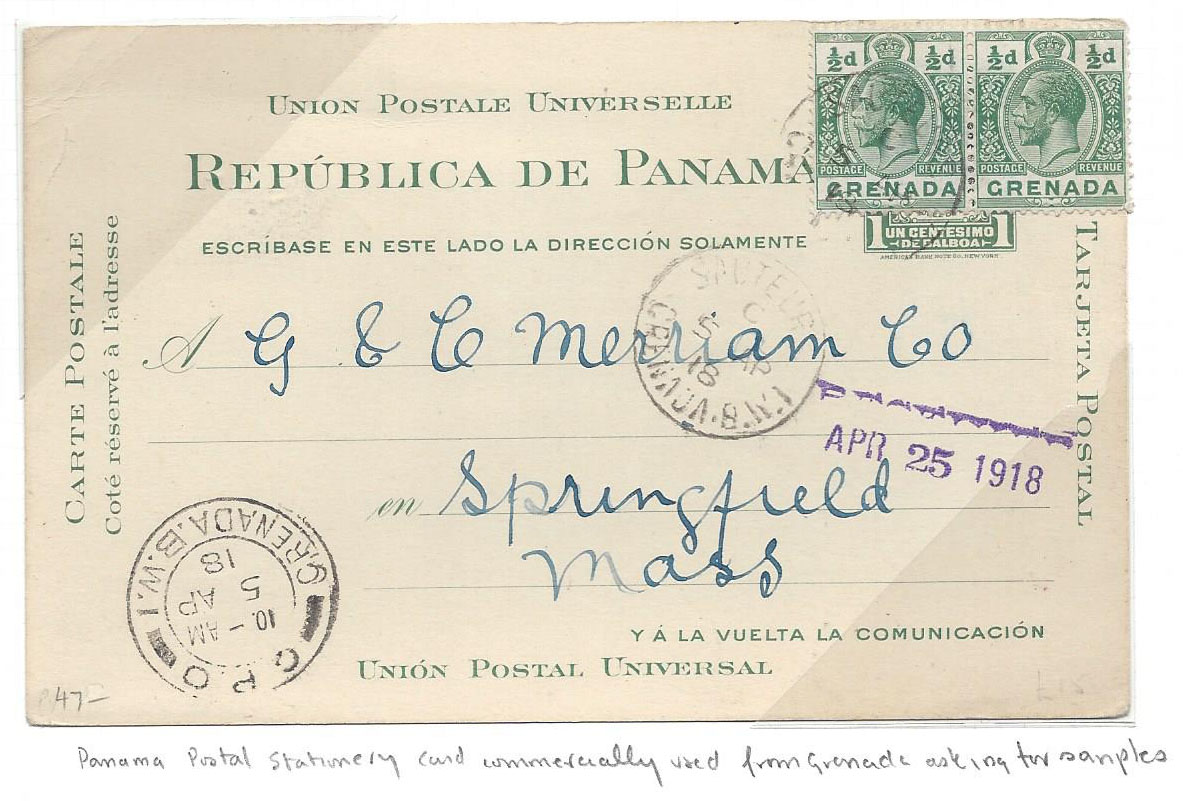 UNION POSTALE UNIVERSELLE
REPÚBLICA DE PANAMA
½d ½d
POSTAGE REVENUE
GRENADA
½d ½d
POSTAGE REVENUE
GRENADA
1 UN CENTESIMO 1
DE BALBOA
AMERICAN BANK NOTE CO. NEW YORK
ESCRÍBASE EN ESTE LADO LA DIRECCIÓN SOLAMENTE
CARTE POSTALE
Coté réservé à l'adresse
TARJETA POSTAL
A G & C Merriam Co
GRENADA.B.W.I.
5 AP
18
APR 25 1918
en Springfield
Mass
G.P.O
GRENADA.B.W.I.
10 - AM
AP
5
18
Y Á LA VUELTA LA COMUNICACIÓN
UNIÓN POSTAL UNIVERSAL
47-
£15
Panama Postal Stationery card commercially used from Grenada asking for samples